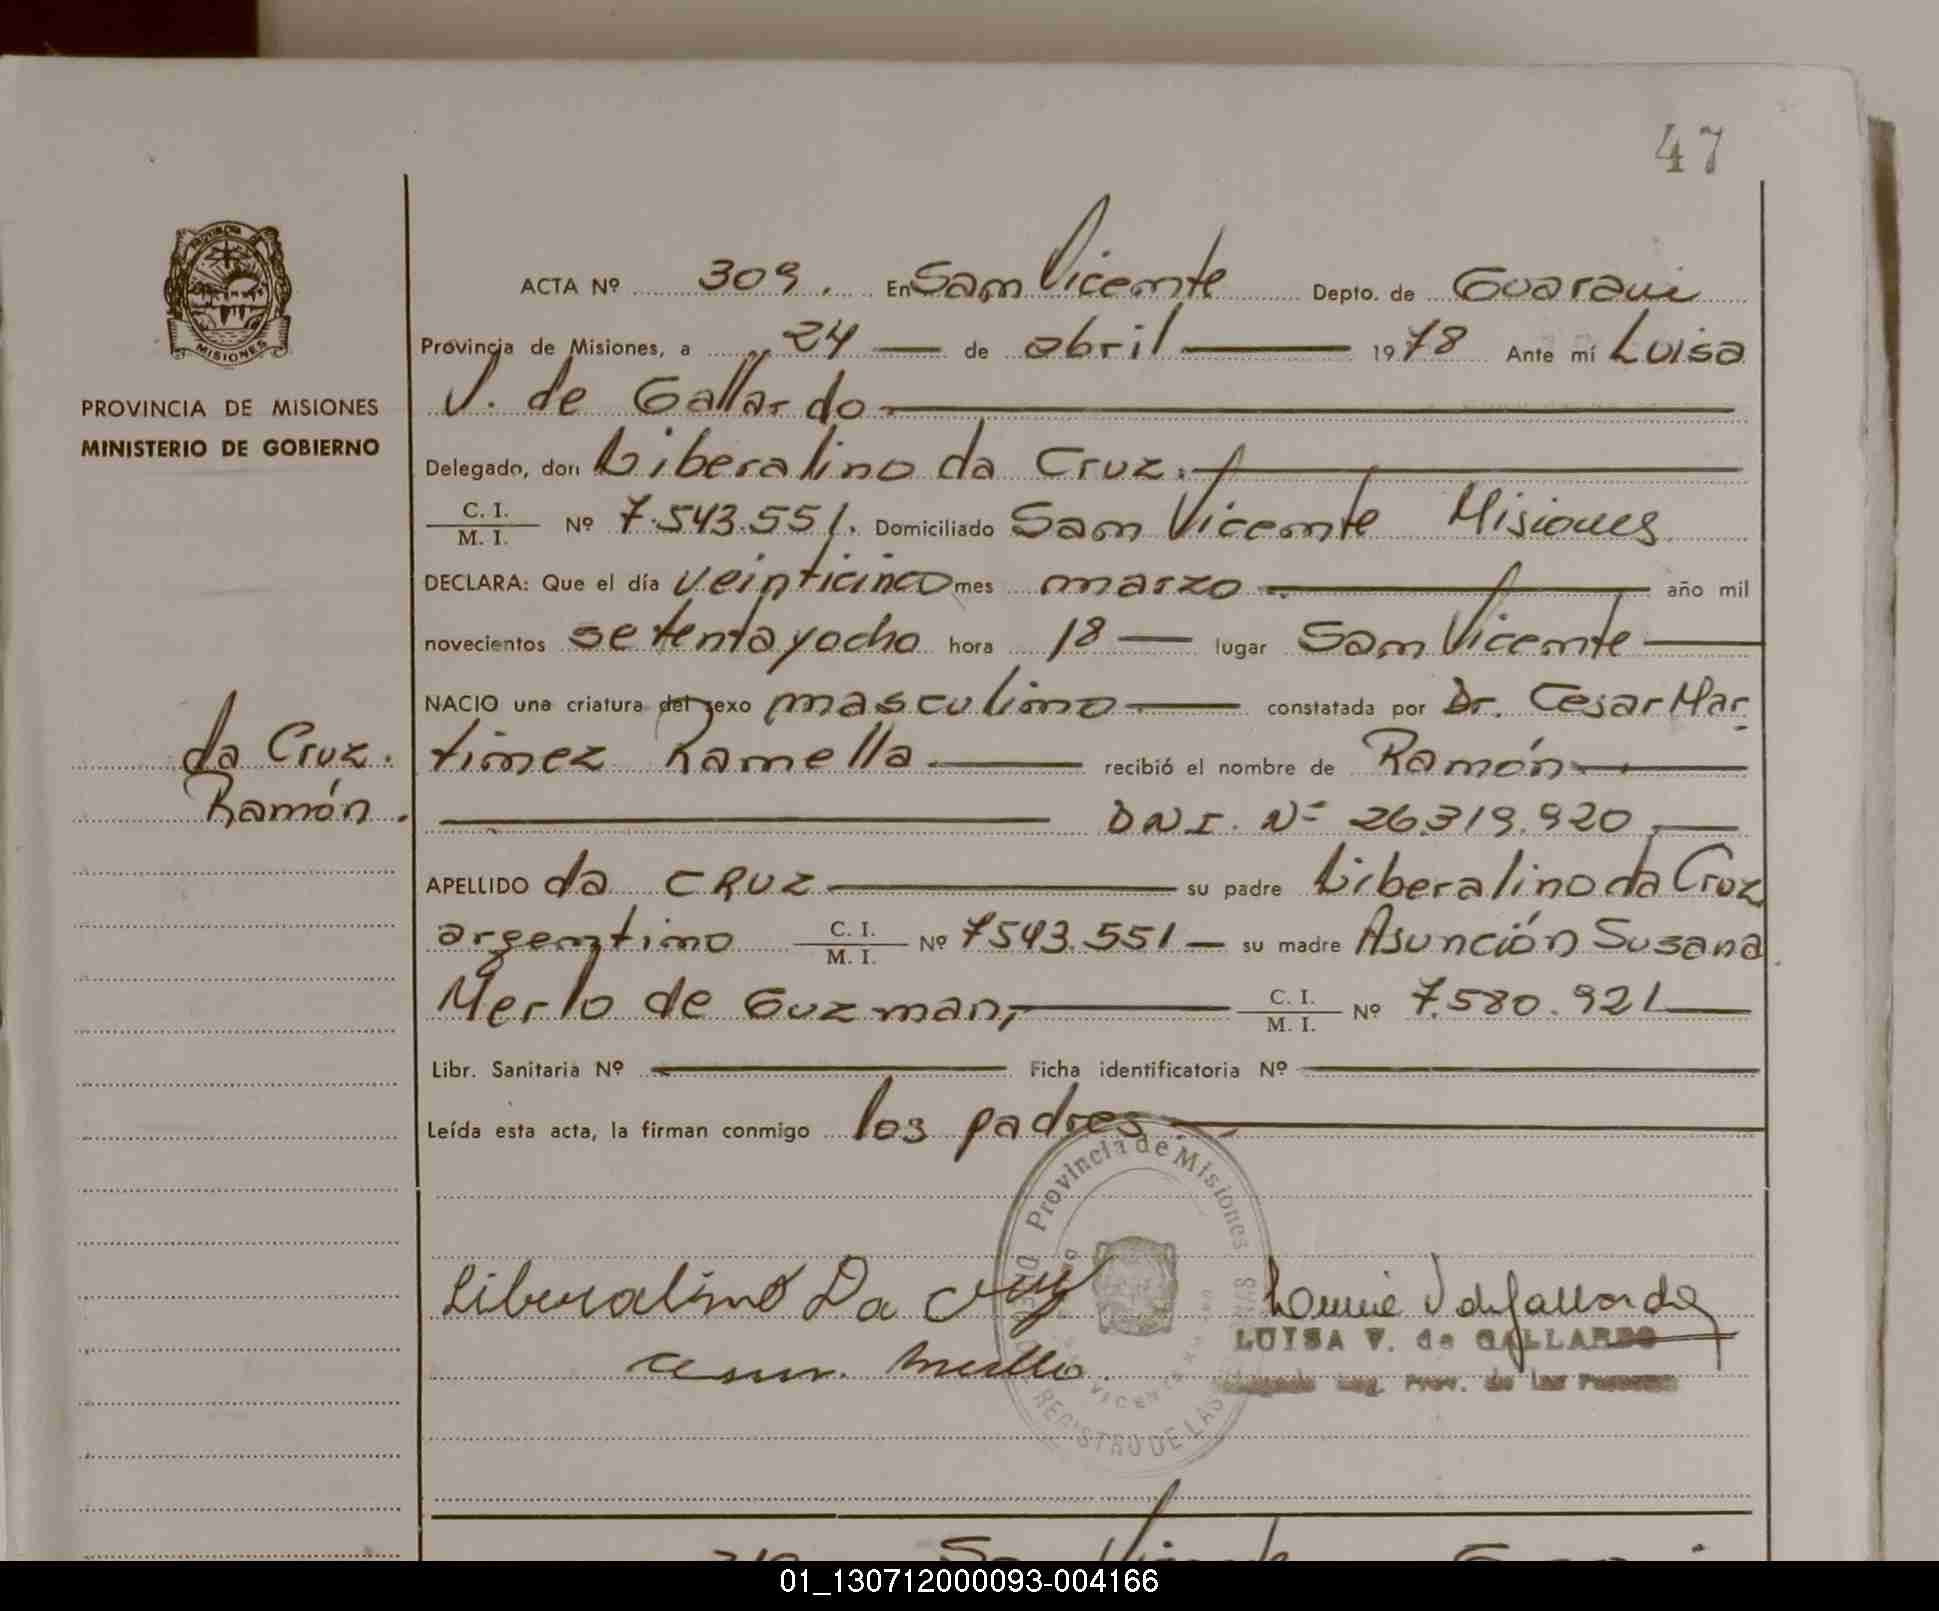 47
PROVINCIA DE
MISIONES
PROVINCIA DE MISIONES
MINISTERIO DE GOBIERNO
da Cruz.
Ramón.
ACTA Nº 309. En San Vicente Depto. de Guarani
Provincia de Misiones, a 24 de abril 1978 Ante mí Luisa
V. de Gallardo
Delegado, don Liberalino da Cruz.
C. I.
M. I. Nº 7.543.551. Domiciliado San Vicente Misiones
DECLARA: Que el día veinticinco mes marzo año mil
novecientos setentayocho hora 18 lugar San Vicente
NACIO una criatura del sexo masculino constatada por Dr. Cesar Mar
tinez Ramella recibió el nombre de Ramón
DNI. Nº 26.319.920
APELLIDO da CRUZ su padre Liberalino da Cruz
argentino C. I.
M. I. Nº 7543.551 su madre Asunción Susana
Merlo de Guzman, C. I.
M. I. Nº 7.580.921
Libr. Sanitaria Nº Ficha identificatoria Nº
Leída esta acta, la firman conmigo los padres.
Provincia de Misiones
REGISTRO DE LAS
VICENTE
Liberalino Da Cruz
LUISA V. de GALLARDO
Reg. Prov. de las Personas
01_130712000093-004166